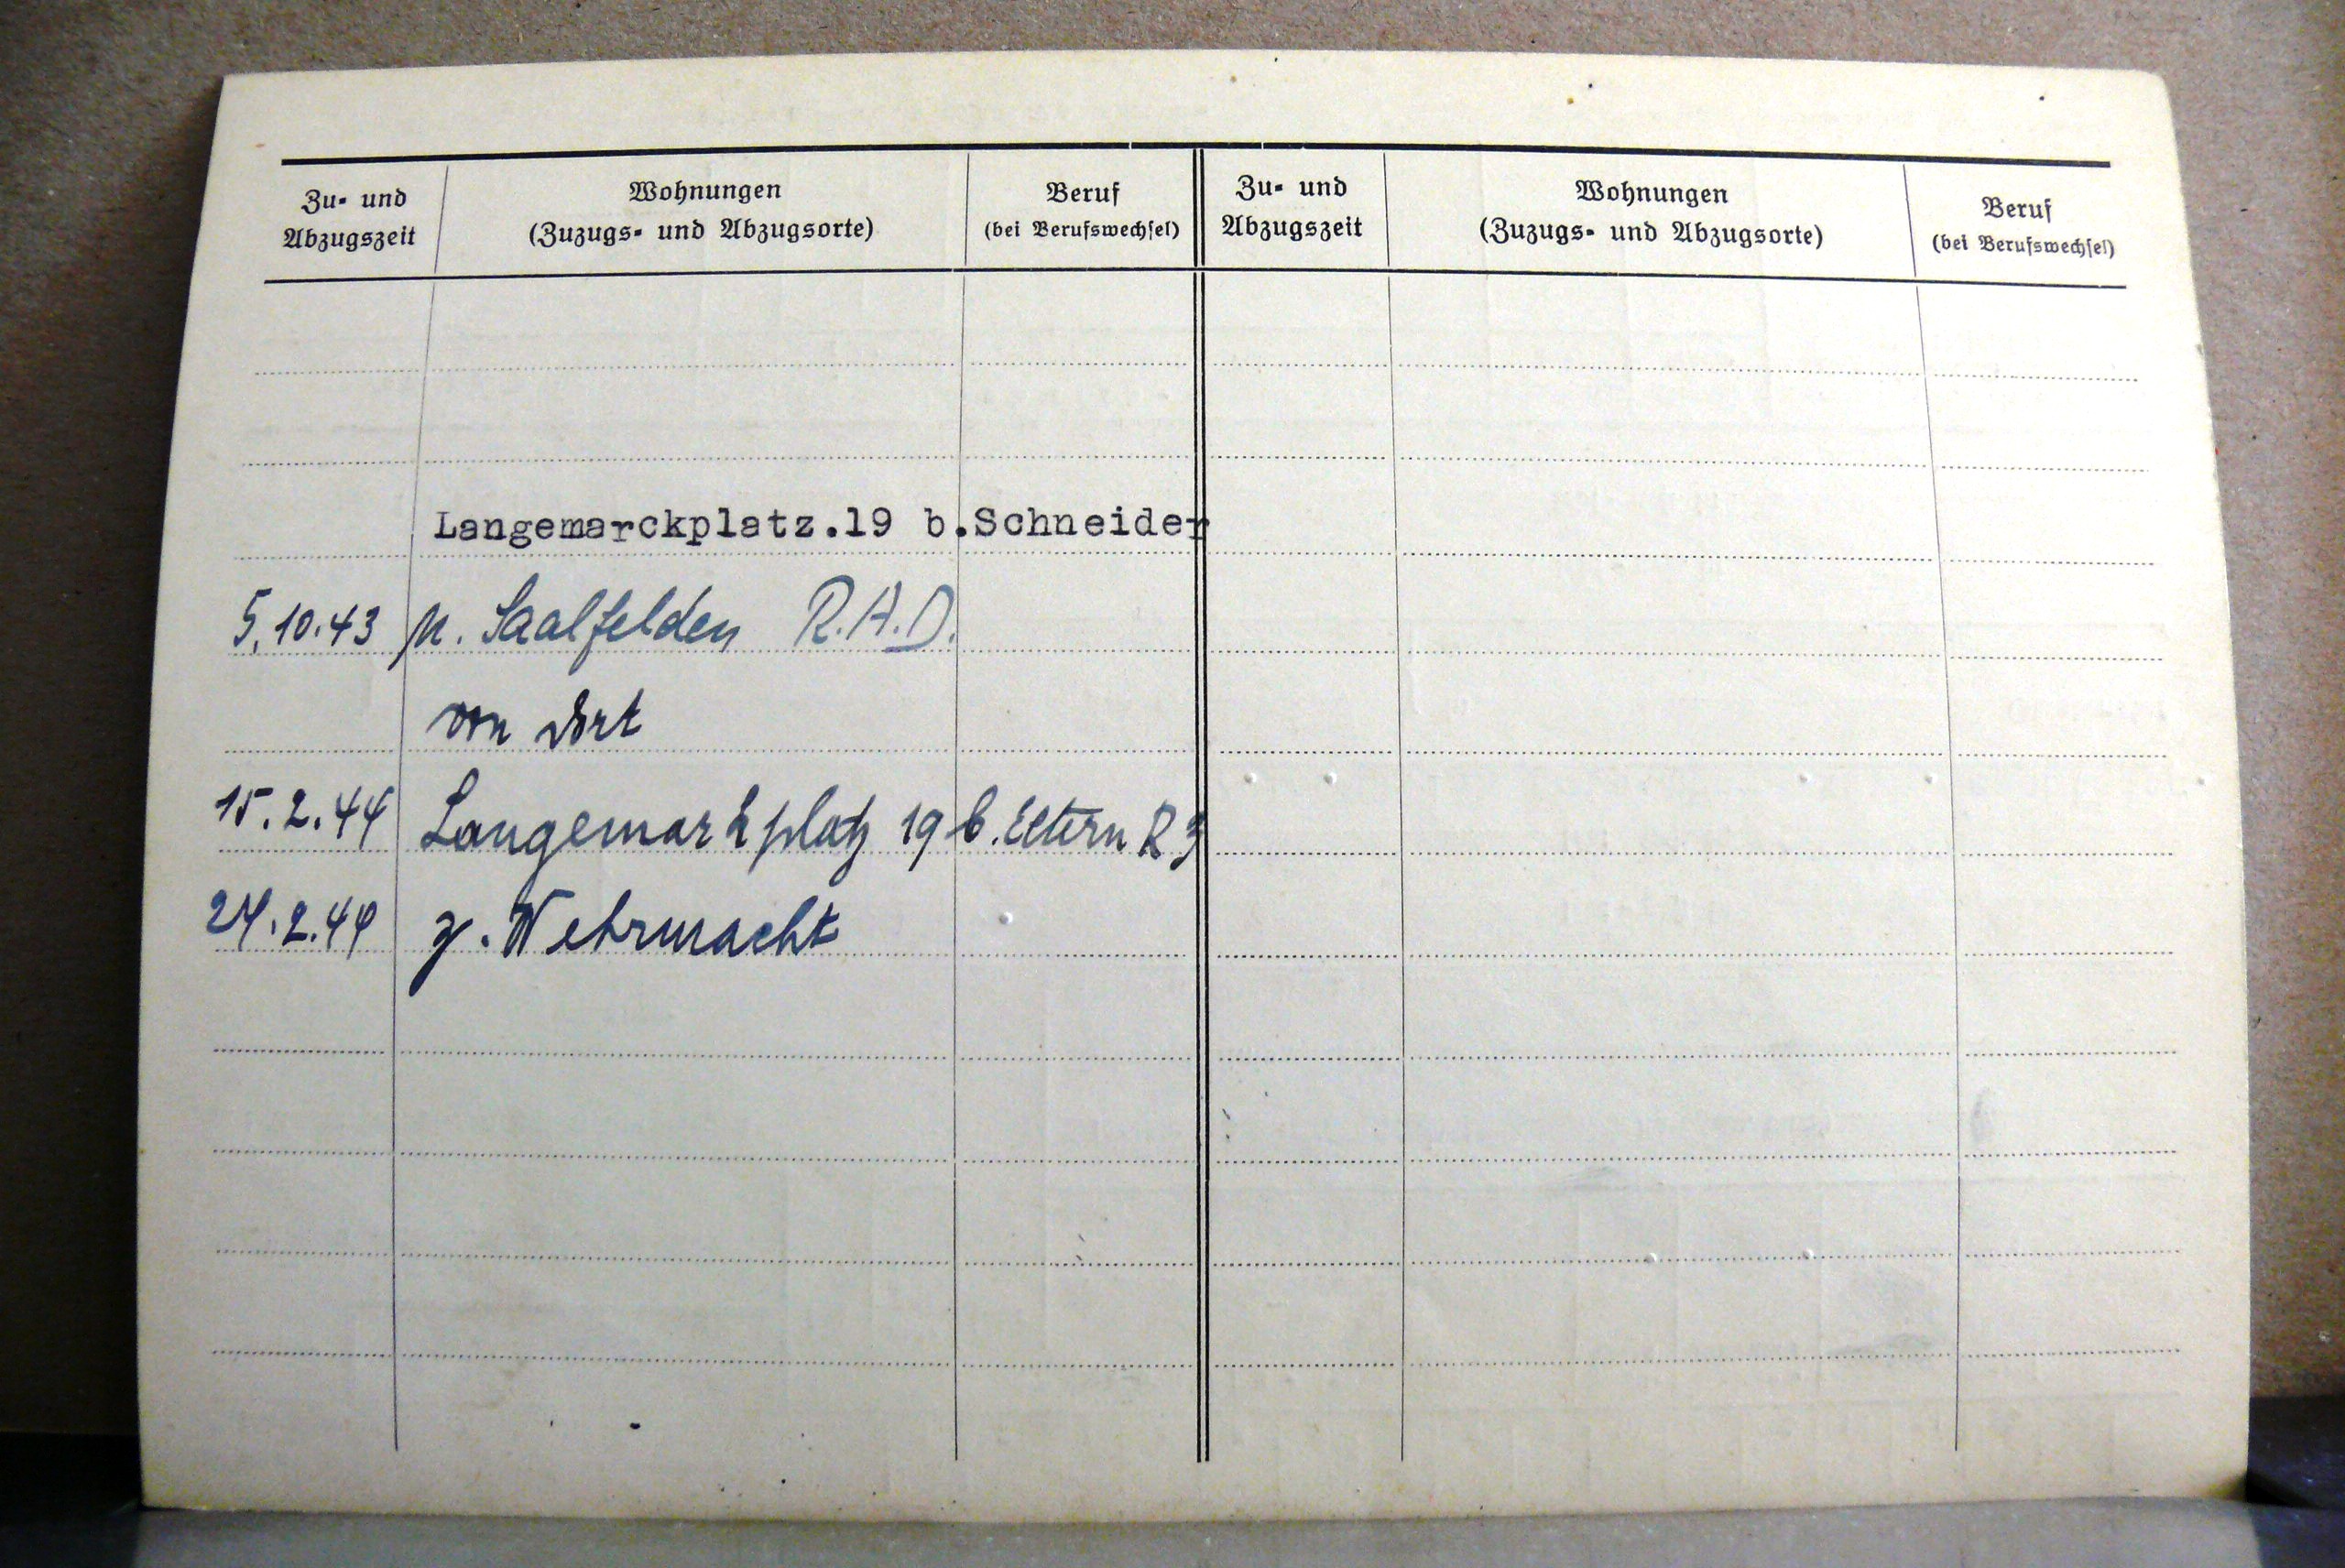 Zu- und Abzugszeit
Wohnungen
(Zuzugs- und Abzugsorte)
Beruf
(bei Berufswechsel)
Zu- und Abzugszeit
Wohnungen
(Zuzugs- und Abzugsorte)
Beruf
(bei Berufswechsel)
Langemarckplatz.19 b.Schneider
5.10.43 n. Saalfelden R.A.D.
von dort
15.2.44 Langemarkplatz 19 b. Eltern
24.2.44 z. Wehrmacht